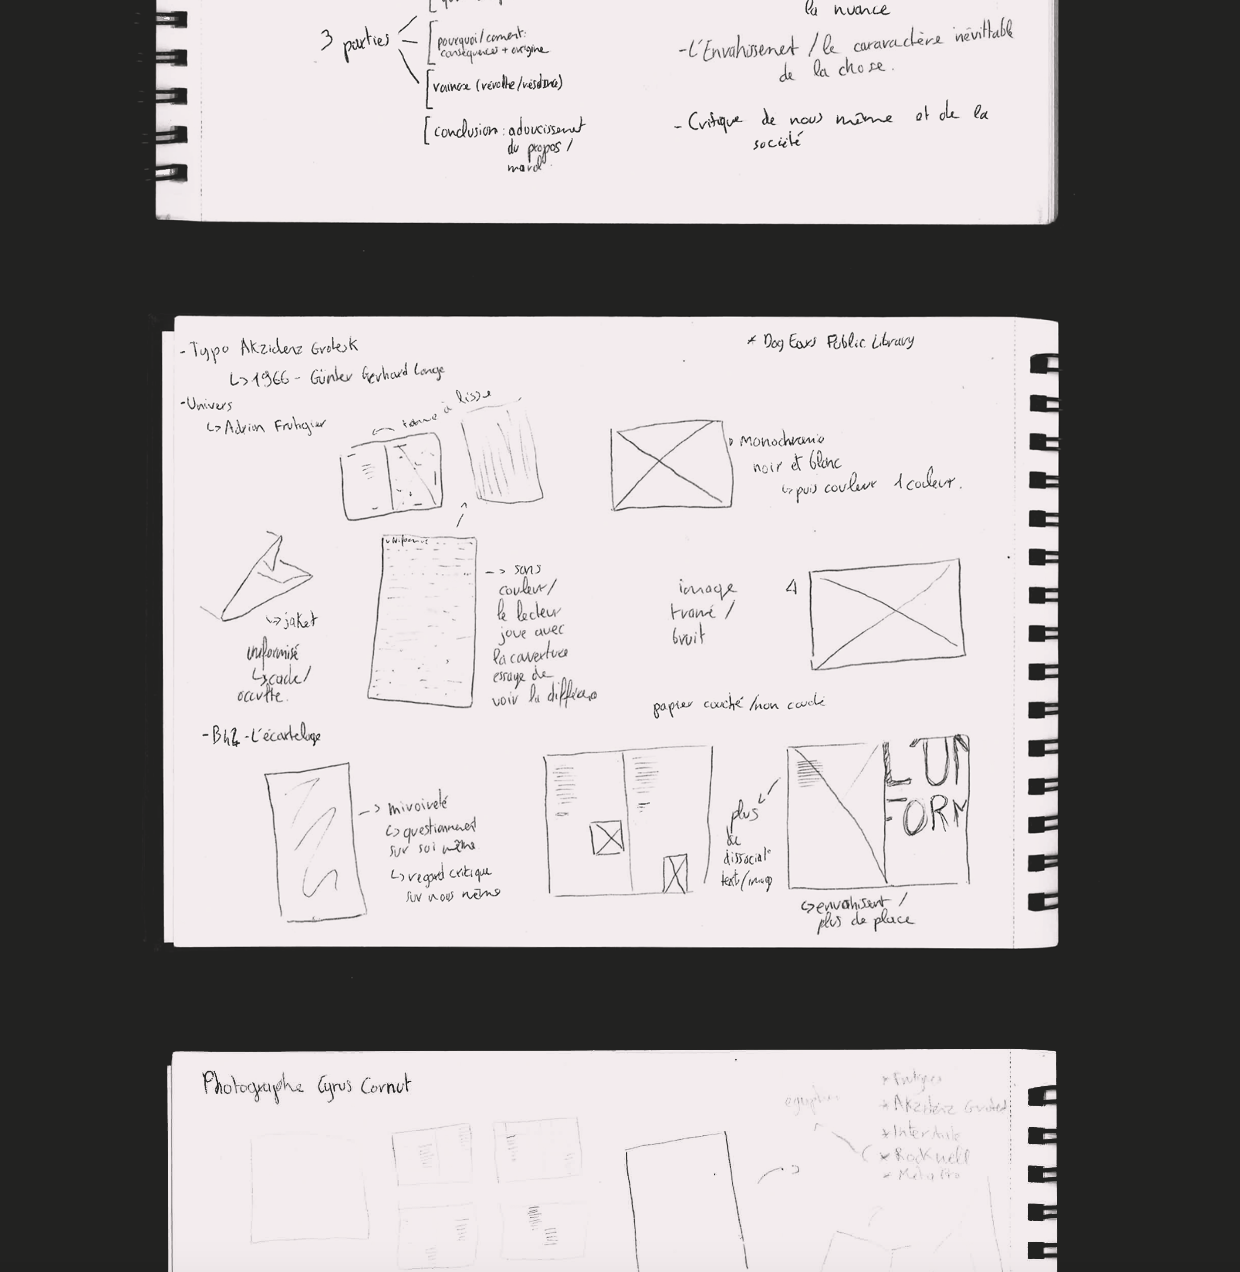 3 parties
pourquoi/coment:
conséquences + origine
vaincre (révolte/résistance)
conclusion: adoucissement
du propos/
moral
la nuance
-L'Envahissement / le cararactère inévittable
de la chose.
- Critique de nous même et de la
société
-Typo Akzidenz Grotesk
↳ 1966 - Günter Gerhard Lange
* Dog Ears Public Library
-Univers
↳ Adrian Frutiger
à lisse
→ Monochromie
noir et blanc
↳ puis couleur 1 couleur.
uniformisé
→ sans
couleur/
le lecteur
joue avec
la couverture
essaye de
voir la différence
↳ jaket
uniformisé
↳ cache/
occulte.
image
tramé /
bruit
4
papier couché/non couché
-B42-L'écartelage
→ miroireté
↳ questionnement
sur soi même
↳ regard critique
sur nous même
plus
de
dissociat°
text/image
L'UN
FORM
↳ envahissent /
plus de place
Photographe Cyrus Cornut
* Frutiger
* Akzidenz Grotesk
* Rockwell